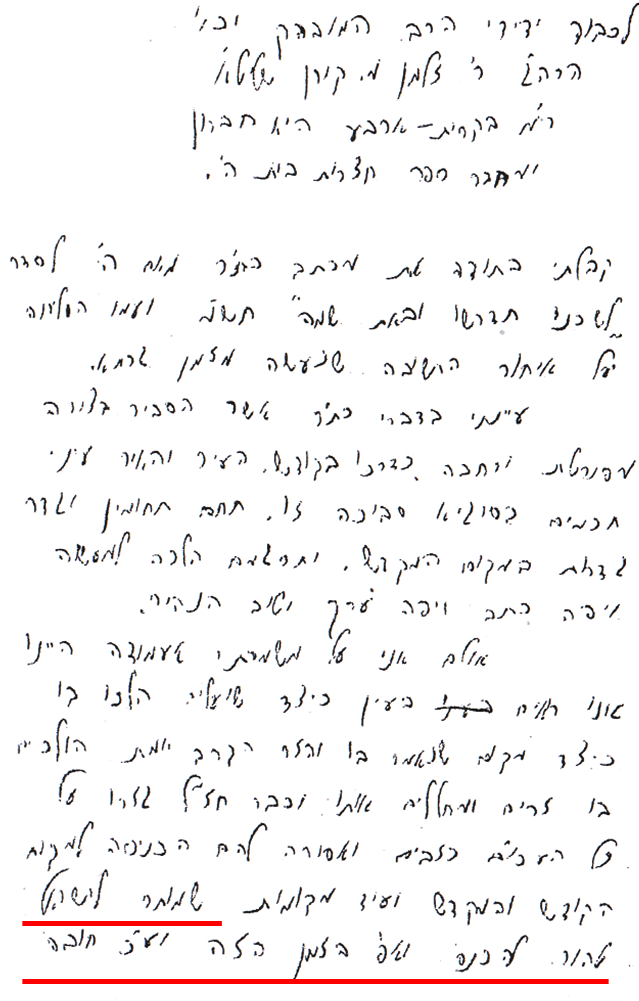 לכבוד ידידי הרב המובהק וכו'
הרה"ג ר' זלמן מ. קורן שליט"א
ר"מ בקרית-ארבע היא חברון
ומחבר ספר חצרות בית ה'.
קבלתי בתודה את מכתב כת"ר מאת ה' לסדר
לשכנו תדרשו ובאת שמה תשמ ועמו הסליחה
על איחור התשובה שנעשה מזמן גרמא.
עיינתי בדברי כת"ר אשר הסביר בצורה
מפורטת ורחבה כדרכו בקודש, העיר והאיר עיני
חכמים בסוגיא סביכה זו, תחם תחומין וגדר
גדרות במקום המקדש, ותרגמם הלכה למעשה
ויפה כתב ויפה ערך ושיב הנהיר.
אולם אני על משמרתי אעמודה היינו
אוכל ראות בעיני בעין כיצד שועלים הלכו בו
כיצד מקום שנאמר בו והזר הקרב יומת הולכים
בו זרים ומחללים אותו וכבר חז"ל גזרו על
כל העכו"ם כזבים ואסורה להם הכניסה למקום
הקודש והמקדש ועוד מקומות שמותר לישראל
טהור להכנס ואף בזמן הזה וע"כ חובה